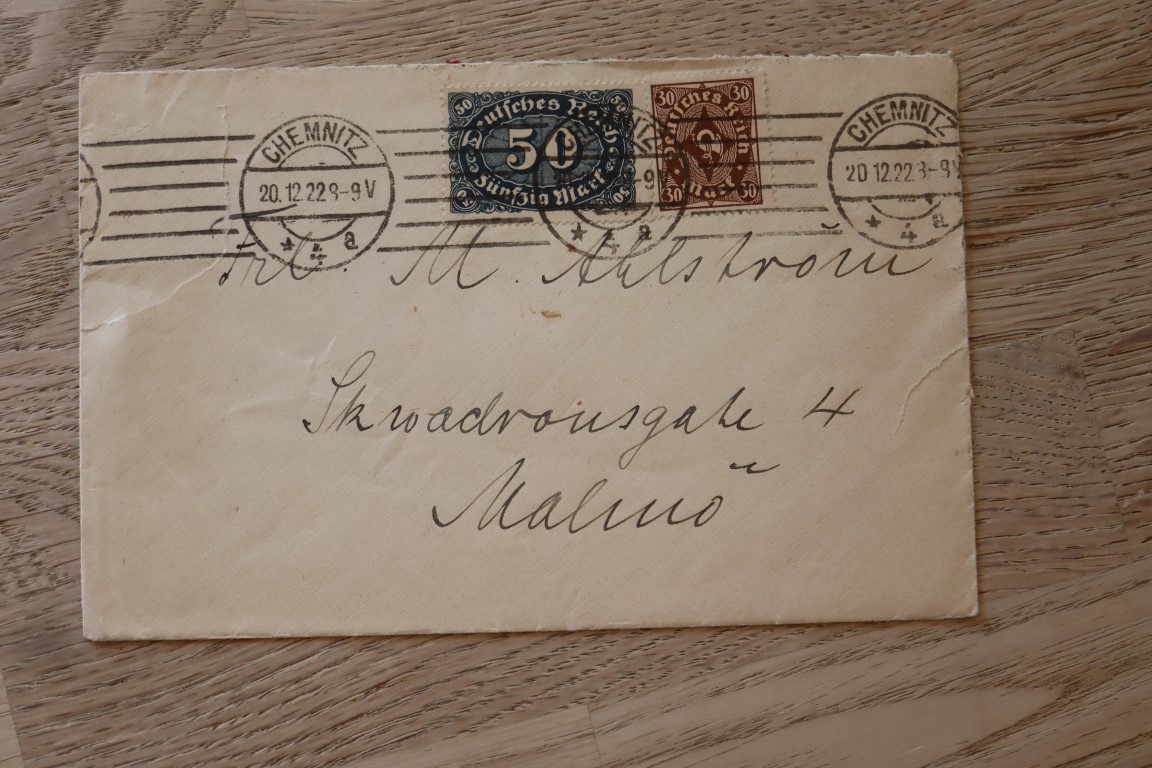 CHEMNITZ
20.12.22 8-9V
* 4 a
50 50
Deutsches Reich
50
Fünfzig Mark
50 50
30 30
Deutsches Reich
Mark
30 30
* 4 a
CHEMNITZ
20.12.22 8-9V
* 4 a
Frl. M. Ahlström
Skwadronsgate 4
Malmö